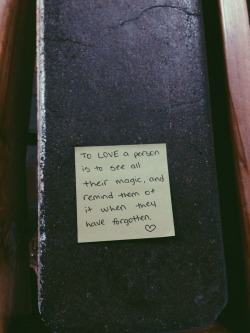 TO LOVE a person
is to see all
their magic, and
remind them of
it when they
have forgotten.
♡